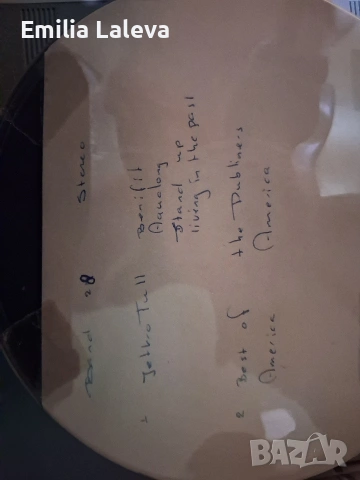 Emilia Laleva
Band 28 Stereo
1 Jethro Tull Benifit
Aqualong
Stand up
living in the past
2 Best of the Dubliners
America America
BAZAR